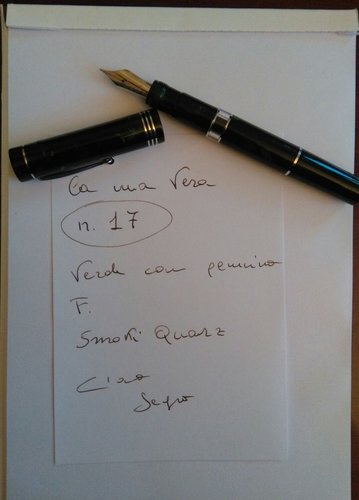 La mia Vera
n. 17
Verde con pennino
F.
Smoki Quarz
Ciao